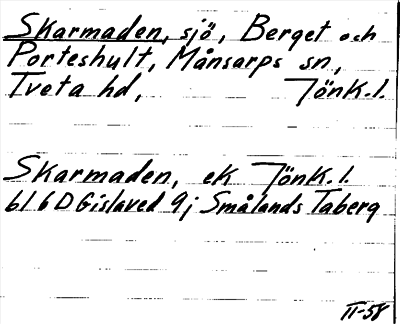 Skarmaden, sjö, Berget och
Porteshult, Månsarps sn,
Tveta hd, Jönk. l.
Skarmaden, ek Jönk. l.
616 D Gislaved 9j Smålands Taberg
II-58